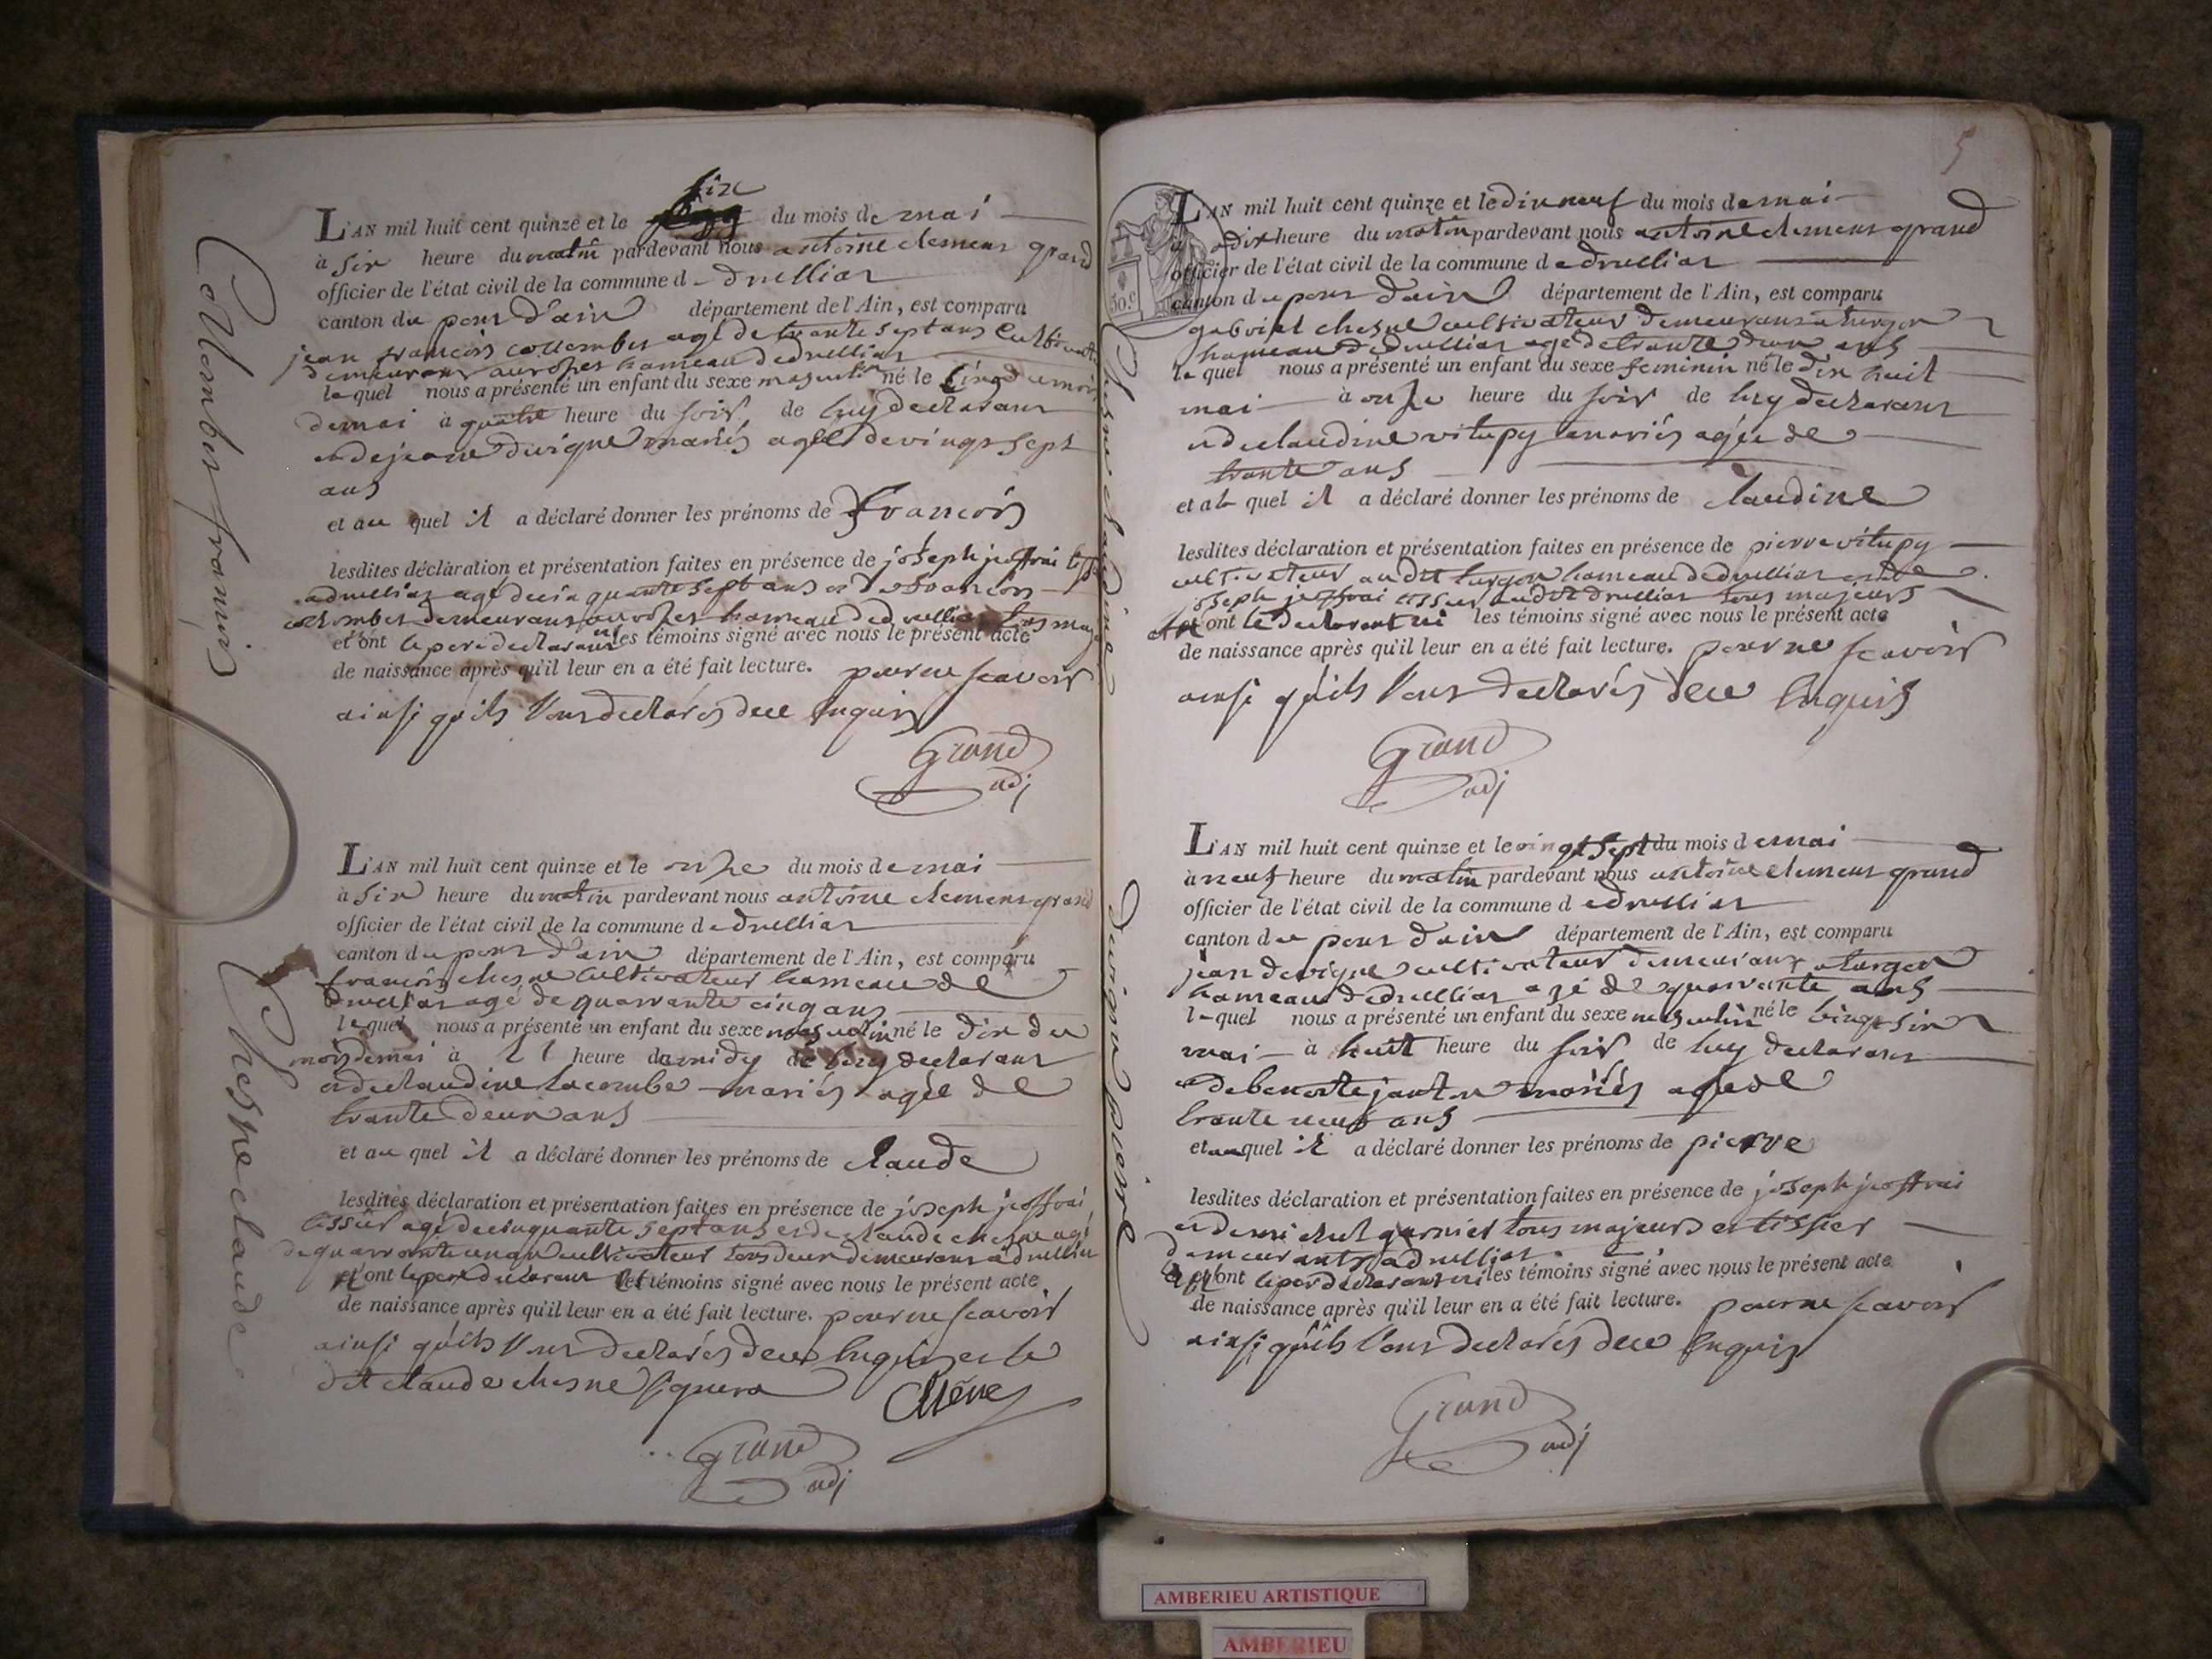 Collomber françois
six
L'AN mil huit cent quinze et le du mois de mai
à six heure du matin pardevant nous antoine clemens grand
officier de l'état civil de la commune d druilliat
canton du pont d'ain département de l'Ain, est comparu
jean françois collomber agé de trante sept ans
demeurant hameau de druilliat
lequel nous a présenté un enfant du sexe masculin né le cinq du mois
de mai à quatre heure du soir de luy declarant
et de jeane devigne mariés agée de vingt sept
ans
et au quel il a déclaré donner les prénoms de françois
lesdites déclaration et présentation faites en présence de joseph jeoffrai
a druilliat agé de cinquante sept ans et de françois
collomber demeurant hameau de druilliat tous maj
et ont le pere declarant les témoins signé avec nous le présent acte
de naissance après qu'il leur en a été fait lecture. pour ne scavoir
ainsi qu'ils l'ont declarés dece enquis
Grand
adj
Chesne claude
L'AN mil huit cent quinze et le onze du mois de mai
à six heure du matin pardevant nous antoine clemens grand
officier de l'état civil de la commune d druilliat
canton du pont d'ain département de l'Ain, est comparu
françois chesne cultivateur hameau de
druilliat agé de quarrante cinq ans
lequel nous a présenté un enfant du sexe masculin né le dix du
mois de mai à heure du midy de luy declarant
et de claudine lacombe mariés agée de
trante deux ans
et au quel il a déclaré donner les prénoms de claude
lesdites déclaration et présentation faites en présence de joseph jeoffrai
tissier agé de cinquante sept ans et de claude chesne agé
de quarrante un an cultivateur tous deux demeurant a druilliat
et ont le pere declarant les témoins signé avec nous le présent acte
de naissance après qu'il leur en a été fait lecture. pour ne scavoir
ainsi qu'ils l'ont declarés dece enquis et le
dit claude chesne signera
Chêne
Grand
adj
5
30.c
Chesne claudine
L'AN mil huit cent quinze et le dix neuf du mois de mai
à dix heure du matin pardevant nous antoine clemens grand
officier de l'état civil de la commune d druilliat
canton du pont d'ain département de l'Ain, est comparu
gabriel chesne cultivateur demeurant a turgon
hameau de druilliat agé de trante deux ans
lequel nous a présenté un enfant du sexe feminin né le dix huit
mai à onze heure du soir de luy declarant
et de claudine vitupy mariés agée de
trante ans
et a la quel il a déclaré donner les prénoms de claudine
lesdites déclaration et présentation faites en présence de pierre vitupy
cultivateur audit turgon hameau de druilliat et de
joseph jeoffrai tissier audit druilliat tous majeurs
et ont le declarant ni les témoins signé avec nous le présent acte
de naissance après qu'il leur en a été fait lecture. pour ne scavoir
ainsi qu'ils l'ont declarés dece enquis
Grand
adj
Devigne pierre
L'AN mil huit cent quinze et le vingt sept du mois de mai
à neuf heure du matin pardevant nous antoine clemens grand
officier de l'état civil de la commune d druilliat
canton du pont d'ain département de l'Ain, est comparu
jean devigne cultivateur demeurant a turgon
hameau de druilliat agé de quarrante ans
lequel nous a présenté un enfant du sexe masculin né le vingt six
mai à huit heure du soir de luy declarant
et de benoite janton mariés agé de
trante neuf ans
et au quel il a déclaré donner les prénoms de pierre
lesdites déclaration et présentation faites en présence de joseph jeoffrai
et de michel garnier tous majeurs et tissier
demeurants a druilliat
et ont le per declarant ni les témoins signé avec nous le présent acte
de naissance après qu'il leur en a été fait lecture. pour ne scavoir
ainsi qu'ils l'ont declarés dece enquis
Grand
adj
AMBERIEU ARTISTIQUE
AMBERIEU